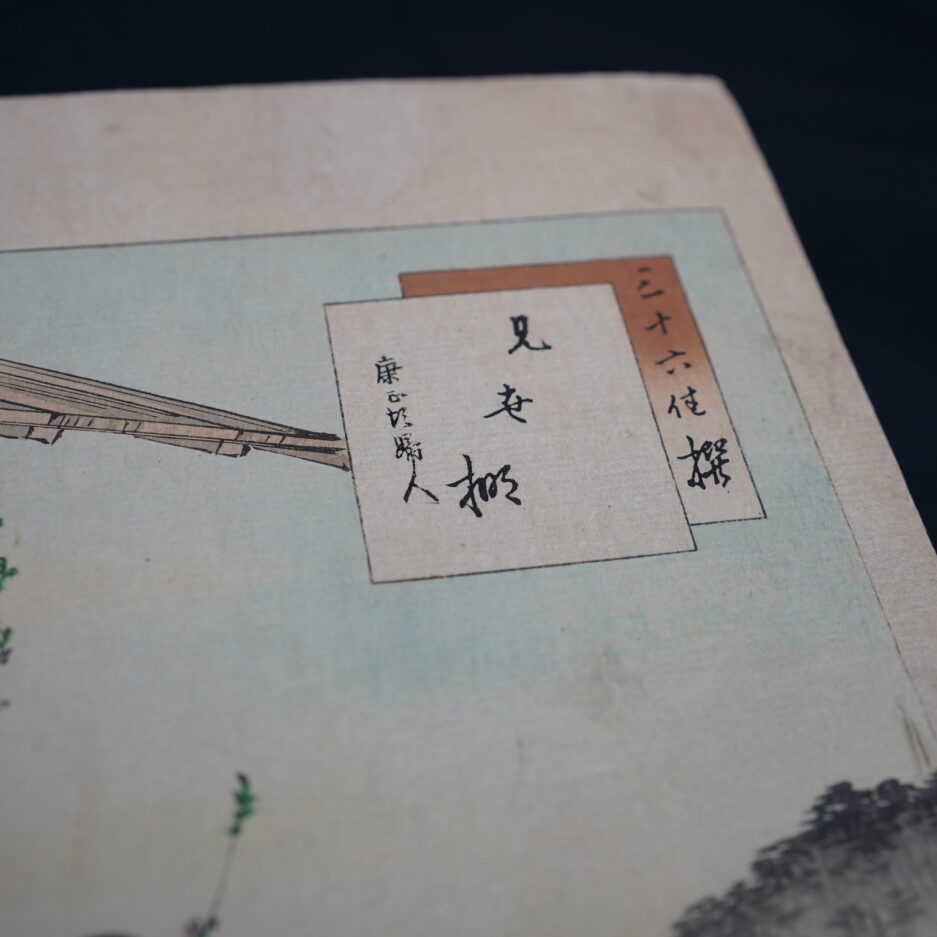 三十六佳撰
見世棚
康正頃婦人